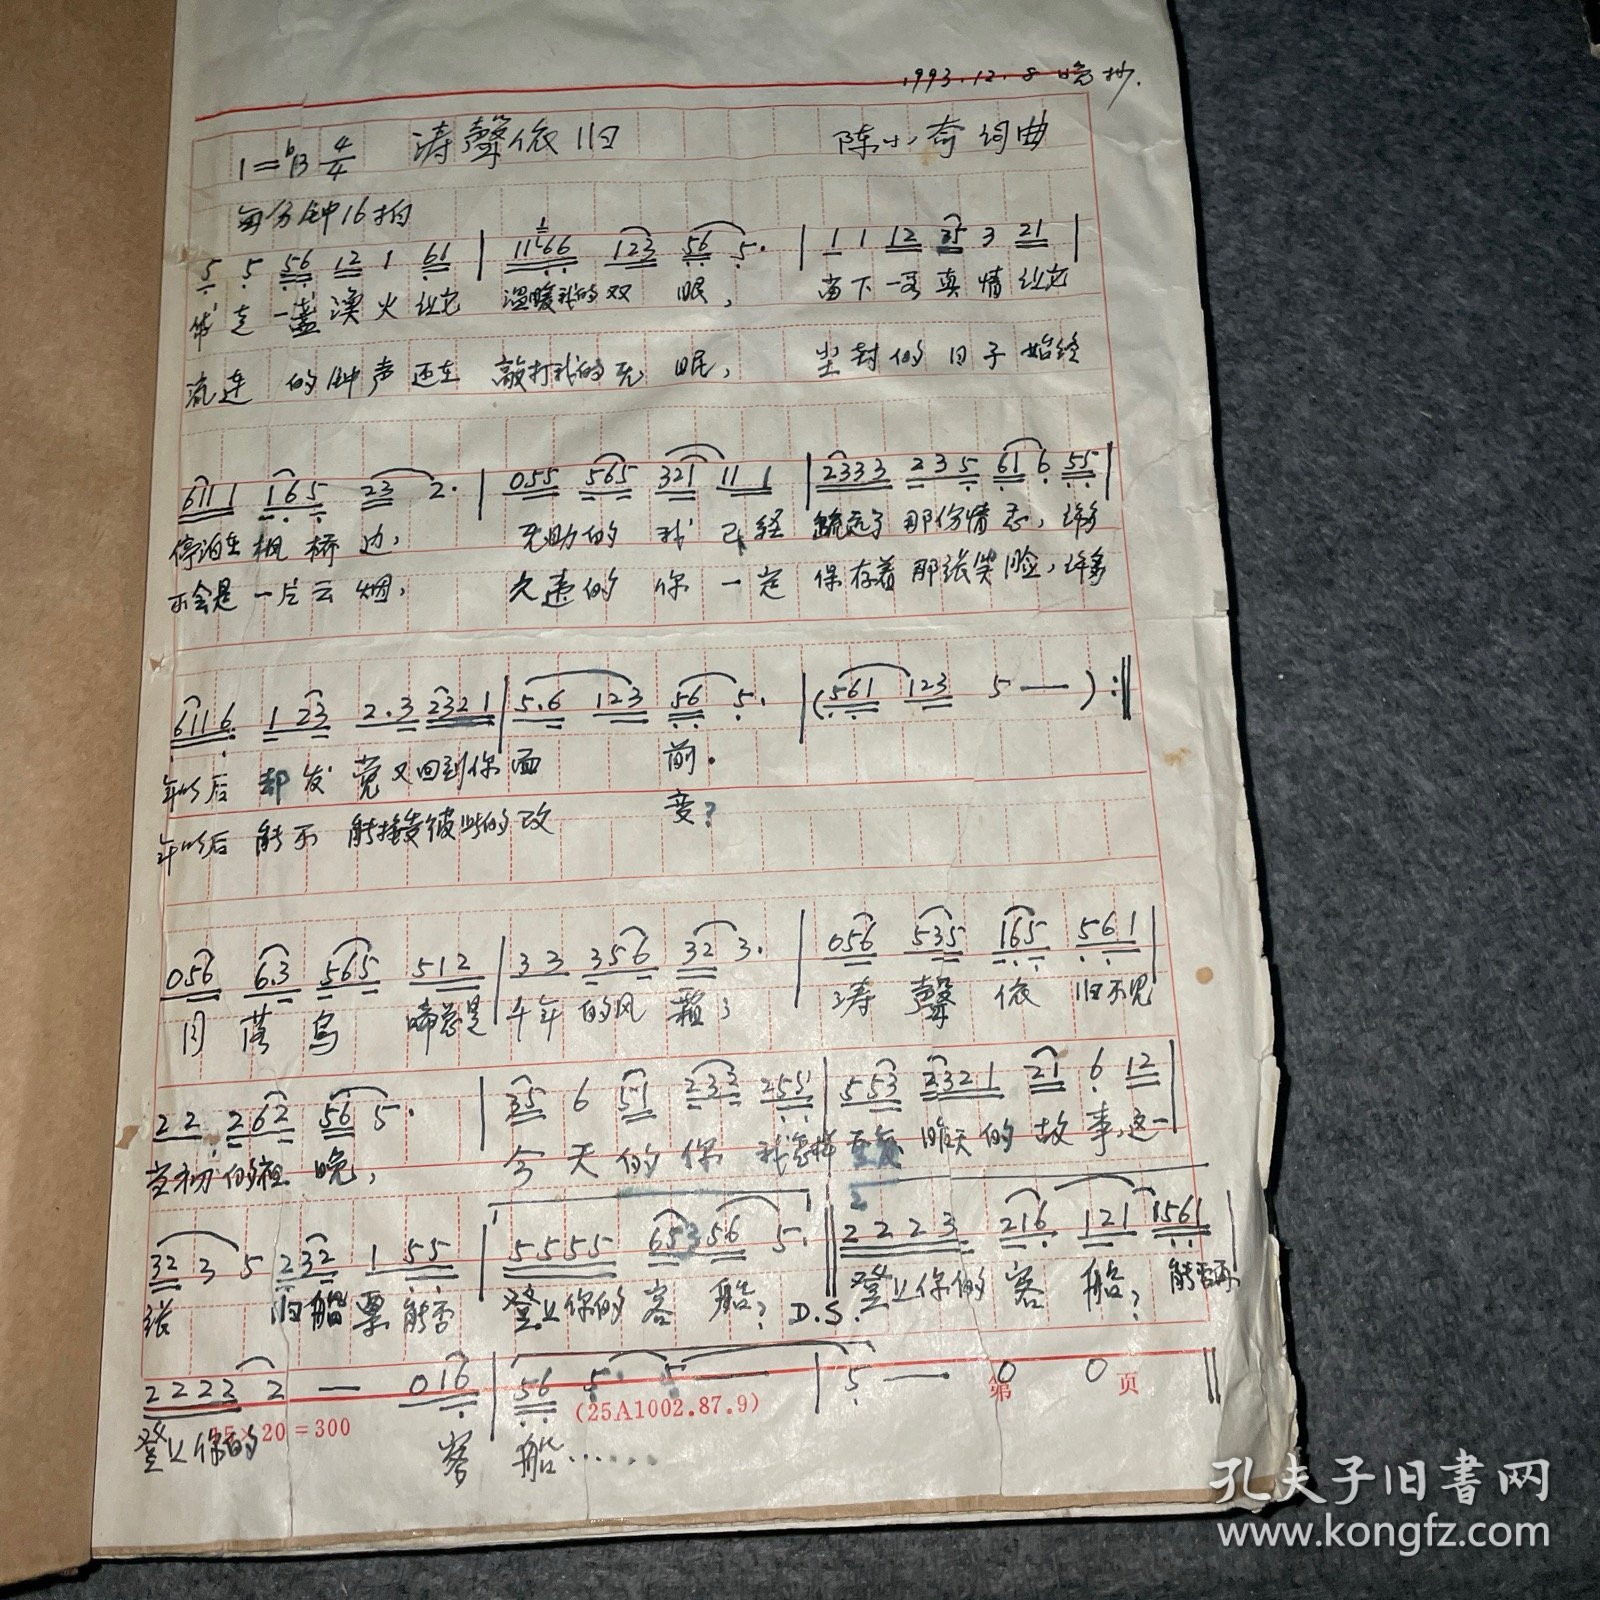 1993.12.8 晚抄.
1=ᵇB 4/4 涛聲依旧 陈小奇 词曲
每分钟16拍
5 5 56 12 1 61 | 1166 123 56 5. | 1 1 12 35 3 21 |
带走一盏漁火让它 温暖我的双眼, 留下一段真情让它
流连的钟声还在 敲打我的无眠, 尘封的日子始终
6111 165 23 2. | 055 565 321 11 1 | 2333 235 61 6 55 |
停泊在枫桥边, 无助的我已经 疏远了那份情感, 许多
不会是一片云烟, 久违的你一定 保存着那张笑脸, 许多
6116 1 23 2.3 2321 | 5.6 123 56 5. | (561 123 5 — ) :‖
年以后却发觉又回到你面前.
年以后能不能接受彼此的改变?
056 63 565 512 | 33 356 32 3. | 056 535 165 561 |
月落乌啼总是千年的风霜; 涛聲依旧不见
22 262 56 5. | 35 6 51 232 255 | 553 2321 21 6 12 |
当初的夜晚, 今天的你我怎样重复昨天的故事,这一
32 3 5 232 1 55 | 5555 653 56 5. ‖ 2 2223 216 121 1561 |
张旧船票能否 登上你的客船? D.S. 登上你的客船? 能否再
2222 2 — 016 | 56 5. 5 — | 5 — 0 0 ‖
15×20=300 (25A1002.87.9) 第 页
登上你的 客 船……
孔夫子旧書网
www.kongfz.com